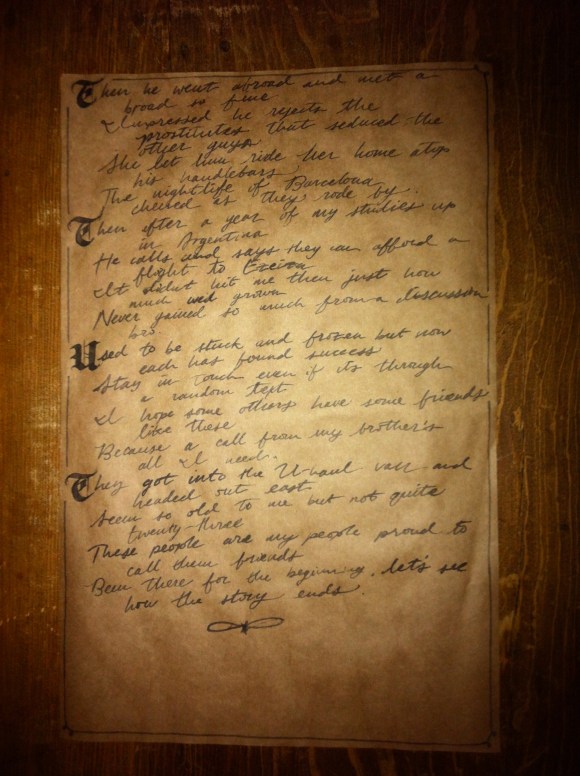 Then he went abroad and met a
broad so fine
Impressed he rejects the
prostitutes that seduced the
other guys
She let him ride her home atop
his handlebars
The nightlife of Barcelona
cheered as they rode by.
Then after a year of my studies up
in Argentina
He calls and says they can afford a
flight to
It didn't hit me then just how
much we'd grown
Never gained so much from a discussion
bro.
Used to be stuck and frozen but now
each has found success
Stay in touch even if its through
a random text
I hope some others have some friends
like these
Because a call from my brother's
all I need.
They got into the U-haul van and
headed out east
Seem so old to me but not quite
twenty-three
These people are my people proud to
call them friends
Been there for the beginning. let's see
how the story ends.